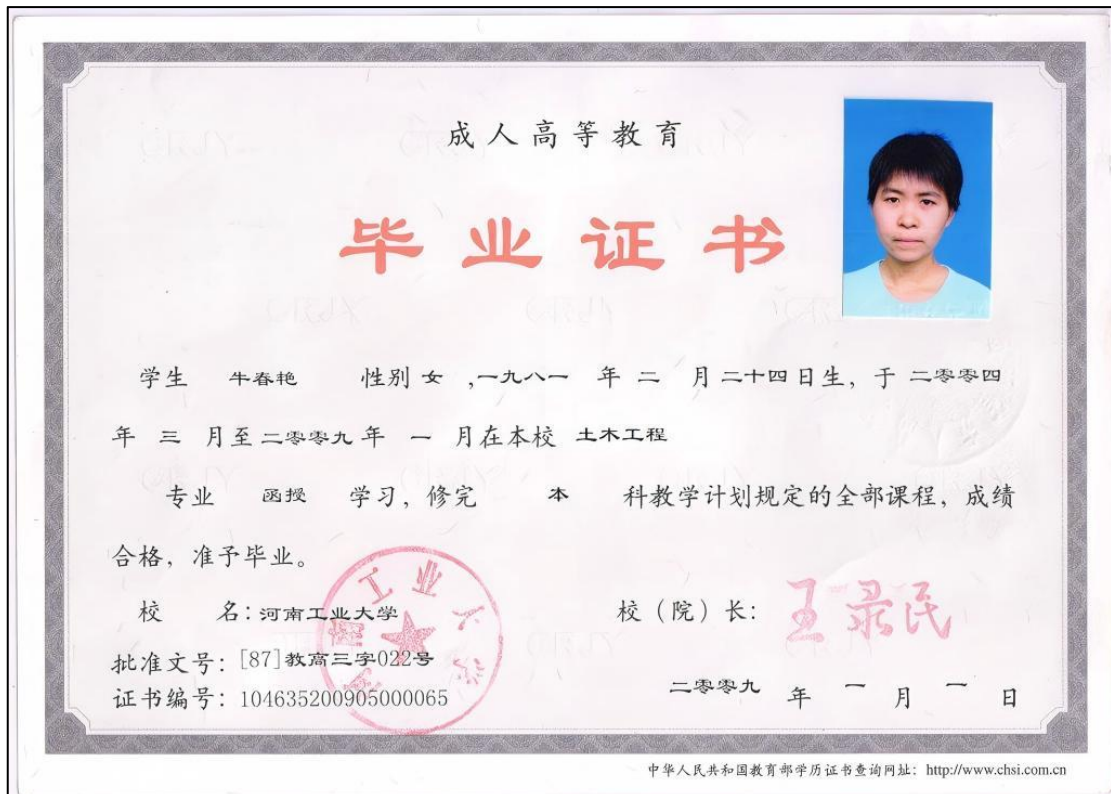 成人高等教育
毕业证书
学生 牛春艳 性别 女 ,一九八一 年 二 月 二十四 日生，于 二零零四
年 三 月至 二零零九 年 一 月在本校 土木工程
专业 函授 学习，修完 本 科教学计划规定的全部课程，成绩
合格，准予毕业。
校 名：河南工业大学 校（院）长：王录民
批准文号：[87]教高三字022号
证书编号：104635200905000065 二零零九 年 一 月 一 日
河南工业大学
中华人民共和国教育部学历证书查询网址：http://www.chsi.com.cn